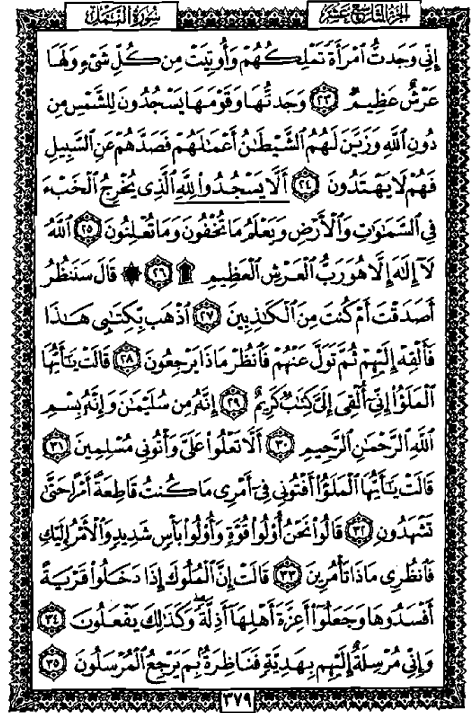 سُورَةُ النَّمْلِ الجزء التاسع عشر
إِنِّي وَجَدتُّ ٱمْرَأَةً تَمْلِكُهُمْ وَأُوتِيَتْ مِن كُلِّ شَيْءٍ وَلَهَا
عَرْشٌ عَظِيمٌ ٢٣ وَجَدتُّهَا وَقَوْمَهَا يَسْجُدُونَ لِلشَّمْسِ مِن
دُونِ ٱللَّهِ وَزَيَّنَ لَهُمُ ٱلشَّيْطَٰنُ أَعْمَٰلَهُمْ فَصَدَّهُمْ عَنِ ٱلسَّبِيلِ
فَهُمْ لَا يَهْتَدُونَ ٢٤ أَلَّا يَسْجُدُوا۟ لِلَّهِ ٱلَّذِي يُخْرِجُ ٱلْخَبْءَ
فِي ٱلسَّمَٰوَٰتِ وَٱلْأَرْضِ وَيَعْلَمُ مَا تُخْفُونَ وَمَا تُعْلِنُونَ ٢٥ ٱللَّهُ
لَآ إِلَٰهَ إِلَّا هُوَ رَبُّ ٱلْعَرْشِ ٱلْعَظِيمِ ۩ ٢٦ ۞ قَالَ سَنَنظُرُ
أَصَدَقْتَ أَمْ كُنتَ مِنَ ٱلْكَٰذِبِينَ ٢٧ ٱذْهَب بِّكِتَٰبِي هَٰذَا
فَأَلْقِهْ إِلَيْهِمْ ثُمَّ تَوَلَّ عَنْهُمْ فَٱنظُرْ مَاذَا يَرْجِعُونَ ٢٨ قَالَتْ يَٰٓأَيُّهَا
ٱلْمَلَؤُا۟ إِنِّيٓ أُلْقِيَ إِلَيَّ كِتَٰبٌ كَرِيمٌ ٢٩ إِنَّهُۥ مِن سُلَيْمَٰنَ وَإِنَّهُۥ بِسْمِ
ٱللَّهِ ٱلرَّحْمَٰنِ ٱلرَّحِيمِ ٣٠ أَلَّا تَعْلُوا۟ عَلَيَّ وَأْتُونِي مُسْلِمِينَ ٣١
قَالَتْ يَٰٓأَيُّهَا ٱلْمَلَؤُا۟ أَفْتُونِي فِيٓ أَمْرِي مَا كُنتُ قَاطِعَةً أَمْرًا حَتَّىٰ
تَشْهَدُونِ ٣٢ قَالُوا۟ نَحْنُ أُو۟لُوا۟ قُوَّةٍ وَأُو۟لُوا۟ بَأْسٍ شَدِيدٍ وَٱلْأَمْرُ إِلَيْكِ
فَٱنظُرِي مَاذَا تَأْمُرِينَ ٣٣ قَالَتْ إِنَّ ٱلْمُلُوكَ إِذَا دَخَلُوا۟ قَرْيَةً
أَفْسَدُوهَا وَجَعَلُوٓا۟ أَعِزَّةَ أَهْلِهَآ أَذِلَّةً ۖ وَكَذَٰلِكَ يَفْعَلُونَ ٣٤
وَإِنِّي مُرْسِلَةٌ إِلَيْهِم بِهَدِيَّةٍ فَنَاظِرَةٌۢ بِمَ يَرْجِعُ ٱلْمُرْسَلُونَ ٣٥
٣٧٩